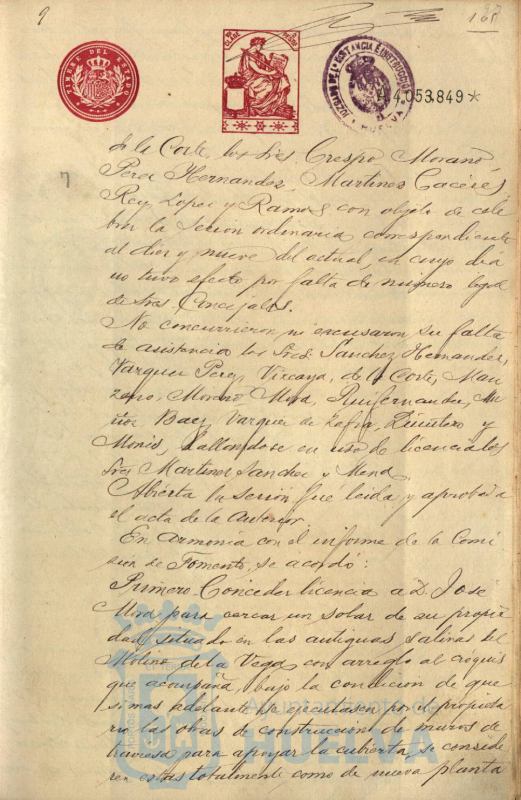 9
168
TIMBRE DEL ESTADO
JUZGADO DE 1ª INSTANCIA E INSTRUCCION HUELVA
4.053.849*
de la Corte, los Sres. Crespo, Morano
Perez Hernandez, Martinez Caceres,
Rey Lopez y Ramos con objeto de cele
brar la sesion ordinaria correspondiente
al diez y nueve del actual, en cuyo dia
no tuvo efecto por falta de número legal
de Sres Concejales.
No concurrieron ni excusaron su falta
de asistencia los Sres. Sanchez Hernandez,
Vazquez Perez, Vizcaya, de la Corte, Man
zano, Moreno Mora, Ruifernandez, Mu
ñoz, Baez, Vazquez de Zafra, Quintero y
Monis, hallandose en uso de licencia los
Sres Martinez Sanchez y Mena.
Abierta la sesión fue leida y aprobada
el acta de la anterior.
En armonía con el informe de la Comi
sion de Fomento, se acordó:
Primero Conceder licencia a D. José
Mora para cercar un solar de su propie
dad situado en las antiguas salinas del
Molino de la Vega con arreglo al cróquis
que acompaña, bajo la condicion de que
si mas adelante se ejecutasen por el propieta
rio las obras de construccion de muros de
traviesa para apoyar la cubierta, se conside
ren estas totalmente como de nueva planta
Ayuntamiento de
HUELVA